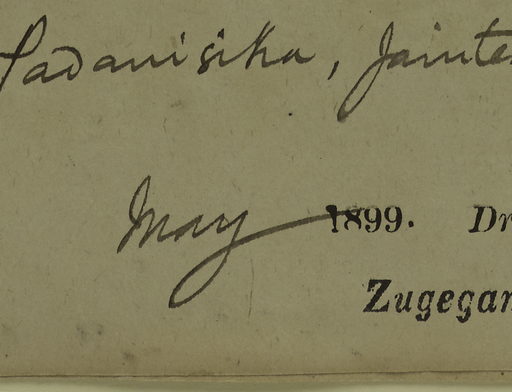 Padanisika, Jainte
May 1899. Dr
Zugegan